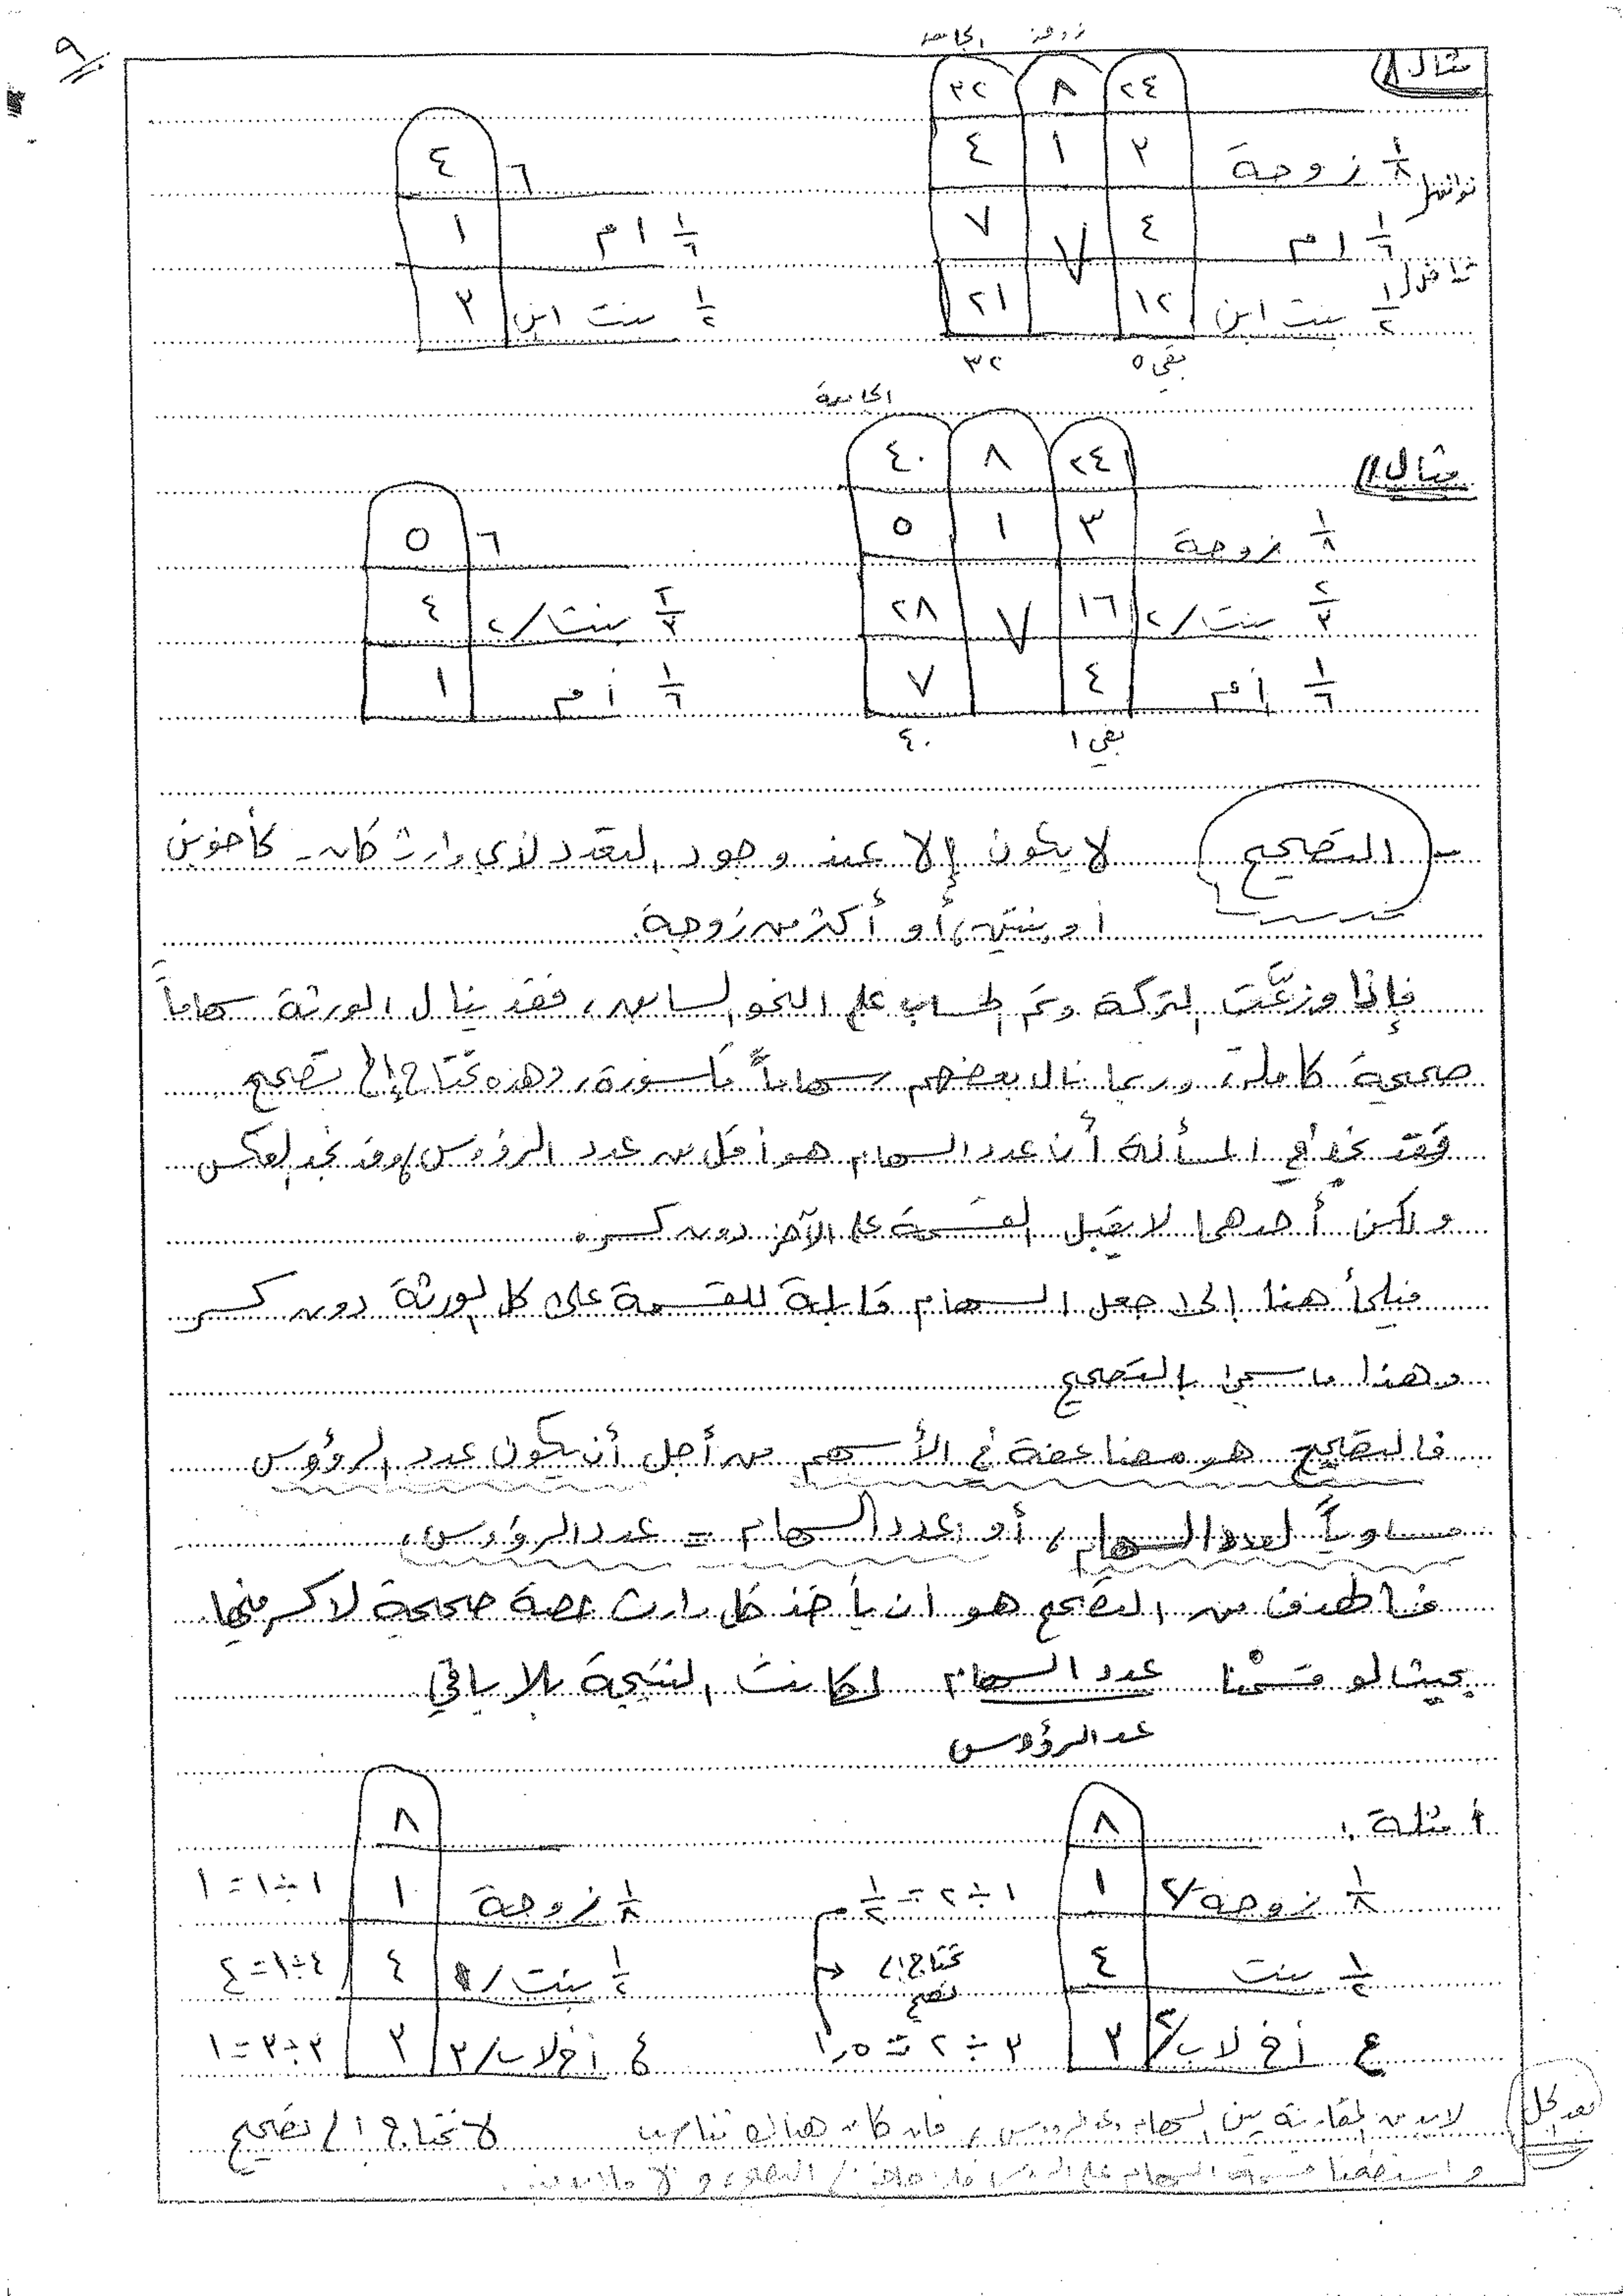 ٩
زوجة الجامعة
مثال //
٢٤ ٨ ٣٢
١/٨ زوجة ٣ ١ ٤
١/٦ ام ٤ ٧ ٧
١/٢ بنت ابن ١٢ ٢١
بقي ٥ ٣٢
٦ ٤
١/٦ ام ١
١/٢ بنت ابن ٣
الجامعة
مثال //
٢٤ ٨ ٤٠
١/٨ زوجة ٣ ١ ٥
٢/٣ بنت/٢ ١٦ ٧ ٢٨
١/٦ أم ٤ ٧
بقي ١ ٤٠
٦ ٥
٢/٣ بنت/٢ ٤
١/٦ أم ١
- التصحيح لا يكون إلا عند وجود التعدد لأي وارث كان - كأخوين
أو بنتين، أو أكثر من زوجة.
فإذا وزعَّت التركة وتم الحساب على النحو السابق، فقد ينال الورثة سهاماً
صحيحة كاملة، وربما نال بعضهم سهاماً مكسورة، وهذه تحتاج إلى تصحيح
فقد نجد في المسألة أن عدد السهام هو أقل من عدد الرؤوس، وقد نجد العكس
ولكن أحدهما لا يقبل القسمة على الآخر دون كسر.
فنلجأ هنا إلى جعل السهام قابلة للقسمة على كل الورثة دون كسر
وهذا ما سمي بالتصحيح
فالتصحيح هو مضاعفة في الأسهم من أجل أن يكون عدد الرؤوس
مساوياً لعدد السهام، أو عدد السهام = عدد الرؤوس،
فالهدف من التصحيح هو ان يأخذ كل وارث حصة صحيحة لا كسر فيها
بحيث لو قسَّمنا عدد السهام لكانت النتيجة بلا باقي
عدد الرؤوس
أمثلة :
٨
١/٨ زوجة/٢ ١ ١ ÷ ٢ = ١/٢
١/٢ بنت ٤ تحتاج إلى تصحيح
ع أخ لاب/٢ ٣ ٣ ÷ ٢ = ١,٥
٨
١/٨ زوجة ١ ١ ÷ ١ = ١
١/٢ بنت/١ ٤ ٤ ÷ ١ = ٤
ع أخ لاب/٣ ٣ ٣ ÷ ٣ = ١
لا تحتاج إلى تصحيح
بعد كل لابد من المقارنة بين السهام والرؤوس، فإن كان هناك تناسب